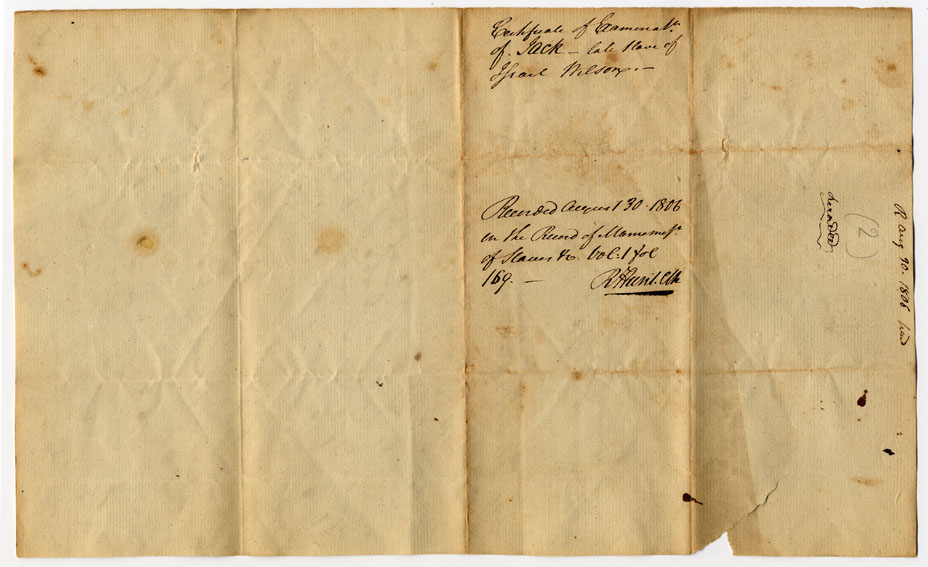 Certificate of Examinatn.
of Jack – late slave of
Israel Wilson. –
Recorded August 30. 1806
in the Record of Manumissn.
of Slaves &c Vol. 1 fol
169. – R Hunt. Clk
recorded
(2)
R Aug 1806